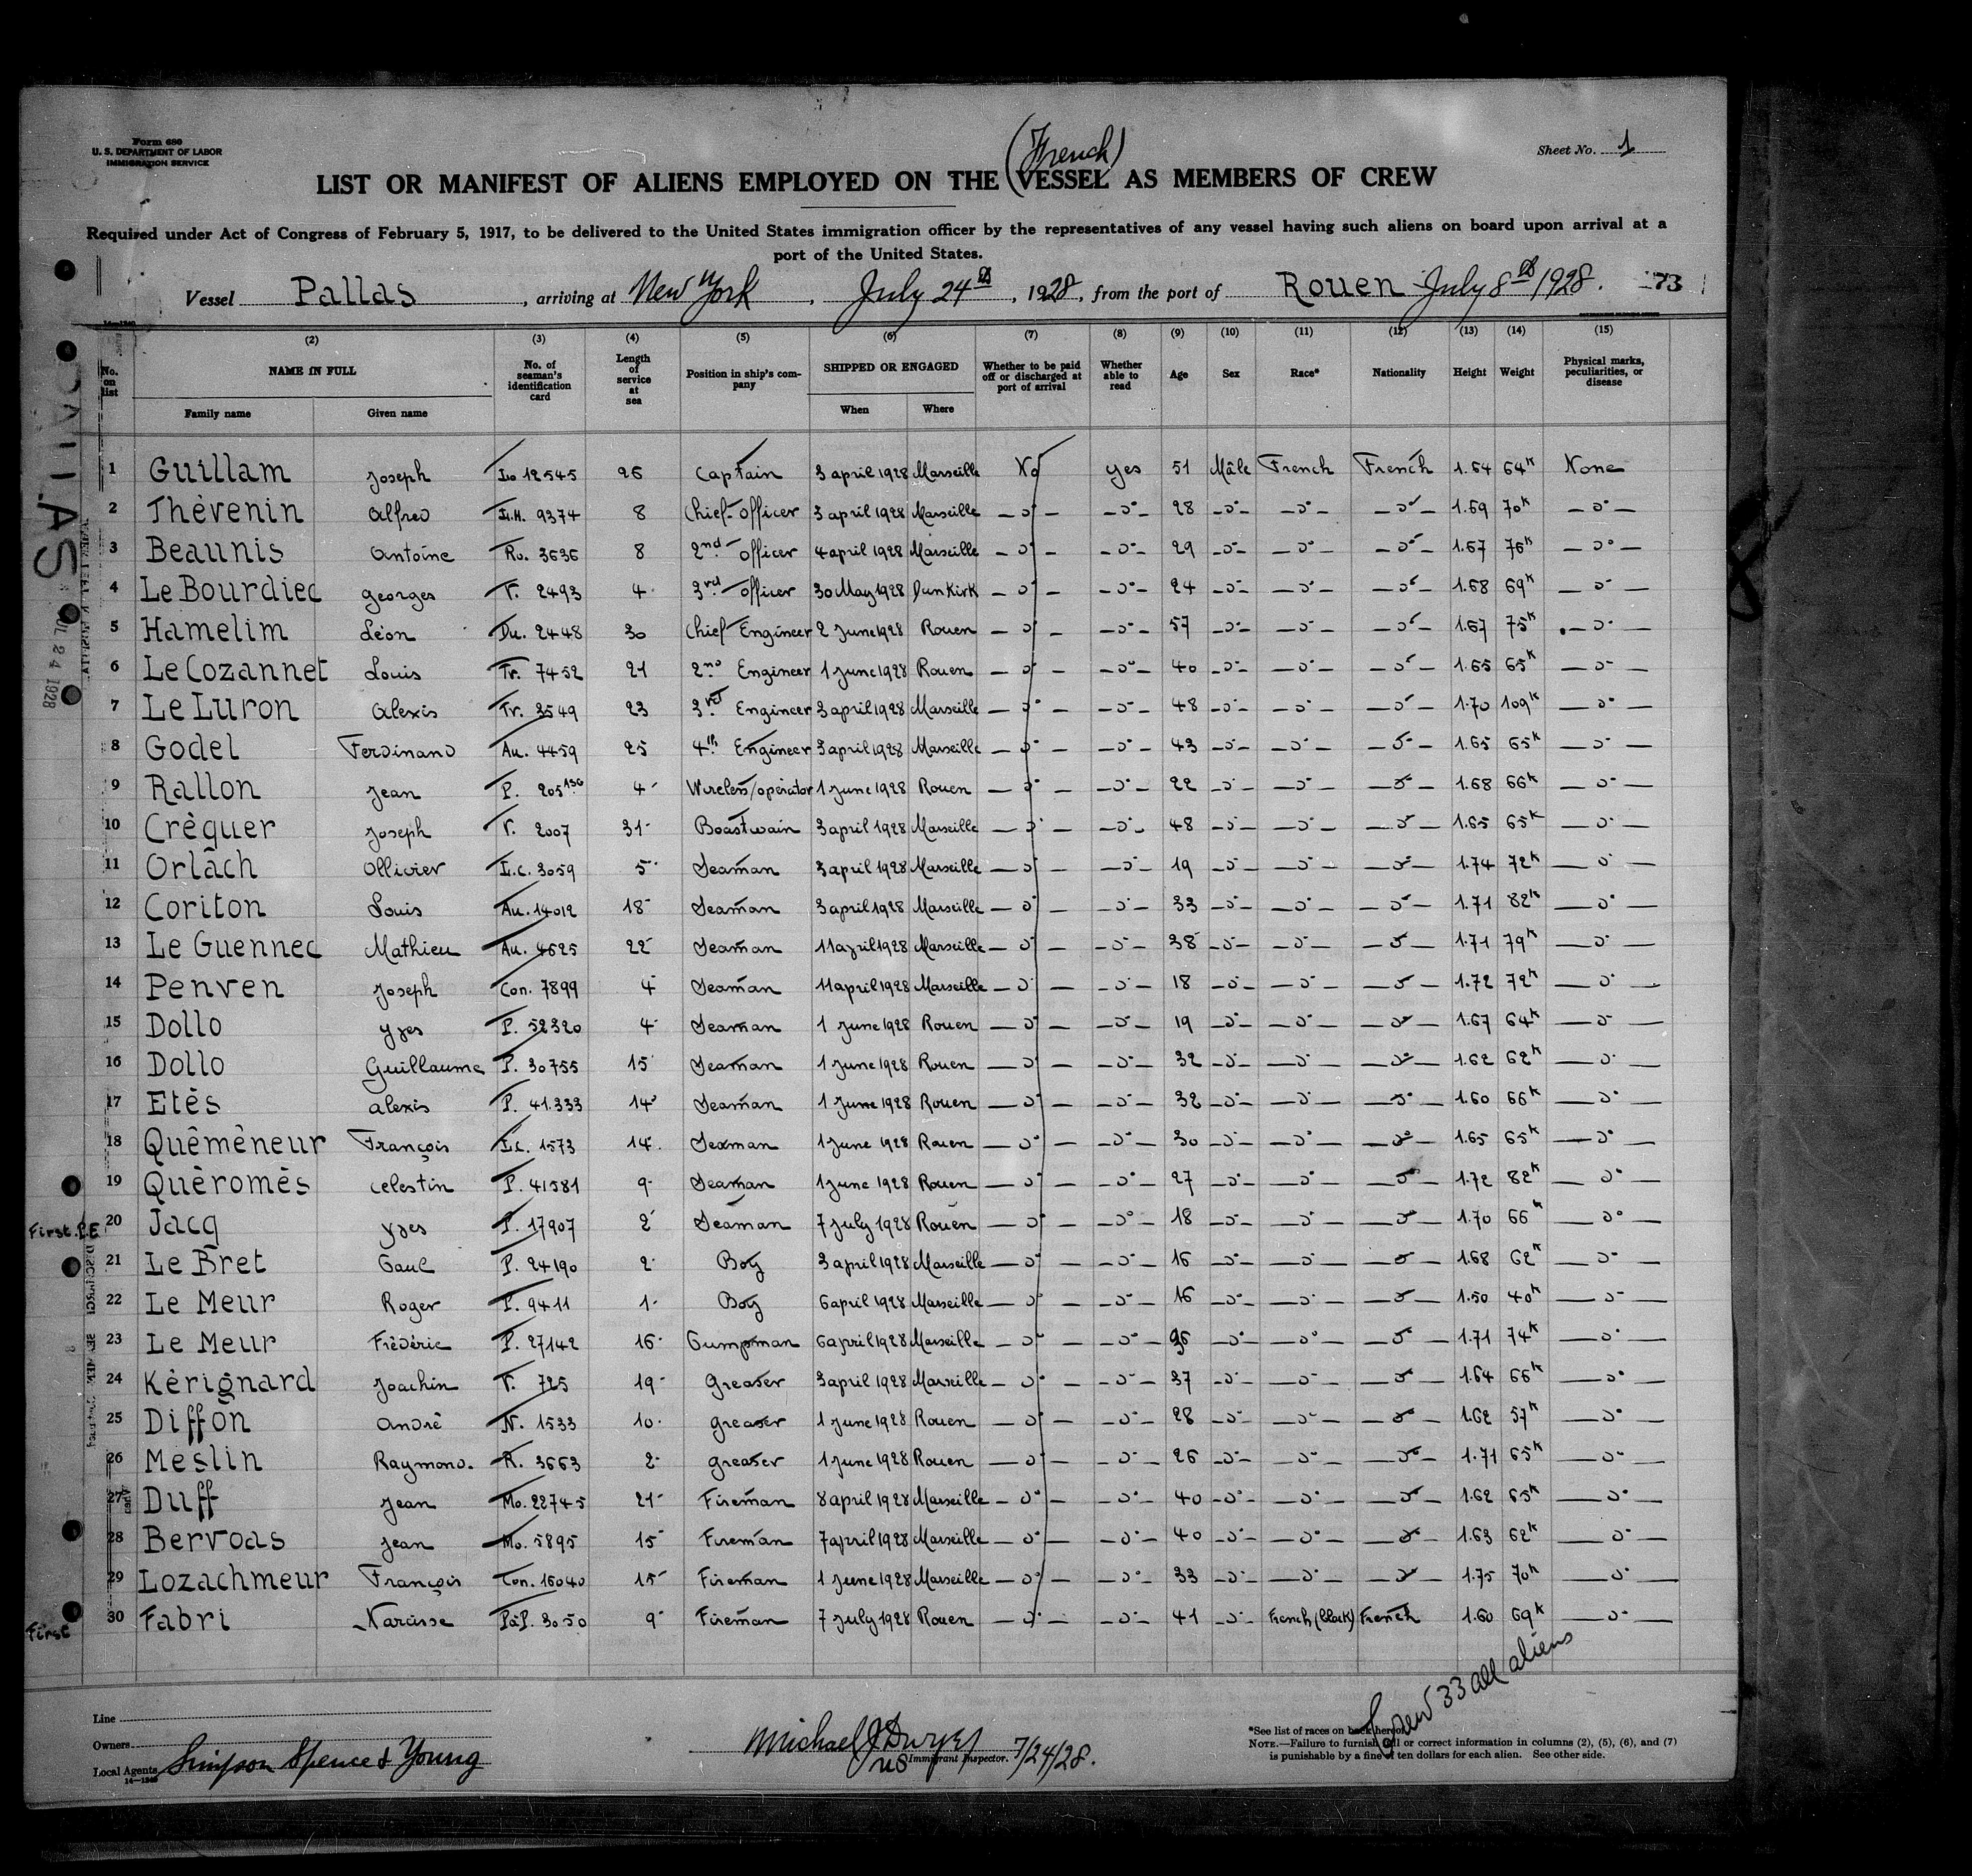 Form 680
U. S. DEPARTMENT OF LABOR
IMMIGRATION SERVICE
Sheet No. 1
(French)
LIST OR MANIFEST OF ALIENS EMPLOYED ON THE VESSEL AS MEMBERS OF CREW
Required under Act of Congress of February 5, 1917, to be delivered to the United States immigration officer by the representatives of any vessel having such aliens on board upon arrival at a
port of the United States.
Vessel Pallas, arriving at New York, July 24th, 1928, from the port of Rouen July 8th 1928. 73
No. on list (2) NAME IN FULL Family name Given name (3) No. of seaman's identification card (4) Length of service at sea (5) Position in ship's company (6) SHIPPED OR ENGAGED When Where (7) Whether to be paid off or discharged at port of arrival (8) Whether able to read (9) Age (10) Sex (11) Race* (12) Nationality (13) Height (14) Weight (15) Physical marks, peculiarities, or disease
1 Guillam Joseph Lo 12545 26 Captain 3 april 1928 Marseille No yes 51 Mâle French French 1.64 64K None
2 Thévenin Alfred L.H. 9374 8 Chief-officer 3 april 1928 Marseille -o- -o- 28 -o- -o- -o- 1.69 70K -o-
3 Beaunis Antoine Ro. 3636 8 2nd officer 4 april 1928 Marseille -o- -o- 29 -o- -o- -o- 1.67 76K -o-
4 Le Bourdiec georges V. 2493 4 3rd officer 30 May 1928 Dunkirk -o- -o- 24 -o- -o- -o- 1.68 69K -o-
5 Hamelim Léon Du. 2448 30 Chief Engineer 2 June 1928 Rouen -o- -o- 57 -o- -o- -o- 1.67 75K -o-
6 Le Cozannet Louis Tr. 7452 21 2nd Engineer 1 June 1928 Rouen -o- -o- 40 -o- -o- -o- 1.65 65K -o-
7 Le Luron Alexis Tr. 3549 23 3rd Engineer 3 april 1928 Marseille -o- -o- 48 -o- -o- -o- 1.70 109K -o-
8 Godel Ferdinand Au. 4459 25 4th Engineer 3 april 1928 Marseille -o- -o- 43 -o- -o- -o- 1.65 65K -o-
9 Rallon Jean P. 205 136 4 Wireless/operator 1 June 1928 Rouen -o- -o- 22 -o- -o- -o- 1.68 66K -o-
10 Créquer Joseph V. 2007 31 Boastwain 3 april 1928 Marseille -o- -o- 48 -o- -o- -o- 1.65 65K -o-
11 Orlach Ollivier L.C. 3059 5 Seaman 3 april 1928 Marseille -o- -o- 19 -o- -o- -o- 1.74 72K -o-
12 Coriton Louis Au. 14012 18 Seaman 3 april 1928 Marseille -o- -o- 33 -o- -o- -o- 1.71 82K -o-
13 Le Guennec Mathieu Au. 4625 22 Seaman 11 april 1928 Marseille -o- -o- 38 -o- -o- -o- 1.71 79K -o-
14 Penven Joseph Con. 7899 4 Seaman 11 april 1928 Marseille -o- -o- 18 -o- -o- -o- 1.72 72K -o-
15 Dollo yves P. 52320 4 Seaman 1 June 1928 Rouen -o- -o- 19 -o- -o- -o- 1.67 64K -o-
16 Dollo Guillaume P. 30755 15 Seaman 1 June 1928 Rouen -o- -o- 32 -o- -o- -o- 1.62 62K -o-
17 Etés alexis P. 41.333 14 Seaman 1 June 1928 Rouen -o- -o- 32 -o- -o- -o- 1.60 66K -o-
18 Quéméneur François L.C. 1573 14 Seaman 1 June 1928 Rouen -o- -o- 30 -o- -o- -o- 1.65 65K -o-
19 Quéromés Celestin P. 41581 9 Seaman 1 June 1928 Rouen -o- -o- 27 -o- -o- -o- 1.72 82K -o-
First. P.E 20 Jacq yves P. 17907 2 Seaman 7 July 1928 Rouen -o- -o- 18 -o- -o- -o- 1.70 66K -o-
21 Le Bret Paul P. 24190 2 Boy 3 april 1928 Marseille -o- -o- 16 -o- -o- -o- 1.68 62K -o-
22 Le Meur Roger P. 9411 1 Boy 6 april 1928 Marseille -o- -o- 16 -o- -o- -o- 1.50 40K -o-
23 Le Meur Frédéric P. 27142 16 Pumpman 6 april 1928 Marseille -o- -o- -o- -o- -o- 1.71 74K -o-
24 Kérignard Joachin V. 725 19 Greaser 3 april 1928 Marseille -o- -o- 37 -o- -o- -o- 1.64 66K -o-
25 Diffon André N. 1533 10 greaser 1 June 1928 Rouen -o- -o- 28 -o- -o- -o- 1.62 57K -o-
26 Meslin Raymond. R. 3663 2 greaser 1 June 1928 Rouen -o- -o- 26 -o- -o- -o- 1.71 65K -o-
27 Duff Jean Mo. 22745 21 Fireman 8 april 1928 Marseille -o- -o- 40 -o- -o- -o- 1.62 65K -o-
28 Bervoas Jean Mo. 5895 15 Fireman 7 april 1928 Marseille -o- -o- 40 -o- -o- -o- 1.63 62K -o-
29 Lozachmeur François Con. 16040 15 Fireman 1 June 1928 Marseille -o- -o- 33 -o- -o- -o- 1.75 70K -o-
First 30 Fabri Narcisse PàP. 3050 9 Fireman 7 July 1928 Rouen -o- -o- 41 -o- French (black) French 1.60 69K -o-
Crew 33 all aliens
Line
Owners
Local Agents Simpson Spence & Young
14-1240
Michael J Dwyer
US Immigrant Inspector. 7/24/28.
*See list of races on back hereof.
NOTE.—Failure to furnish full or correct information in columns (2), (5), (6), and (7)
is punishable by a fine of ten dollars for each alien. See other side.
PALLAS
JUL 24 1928